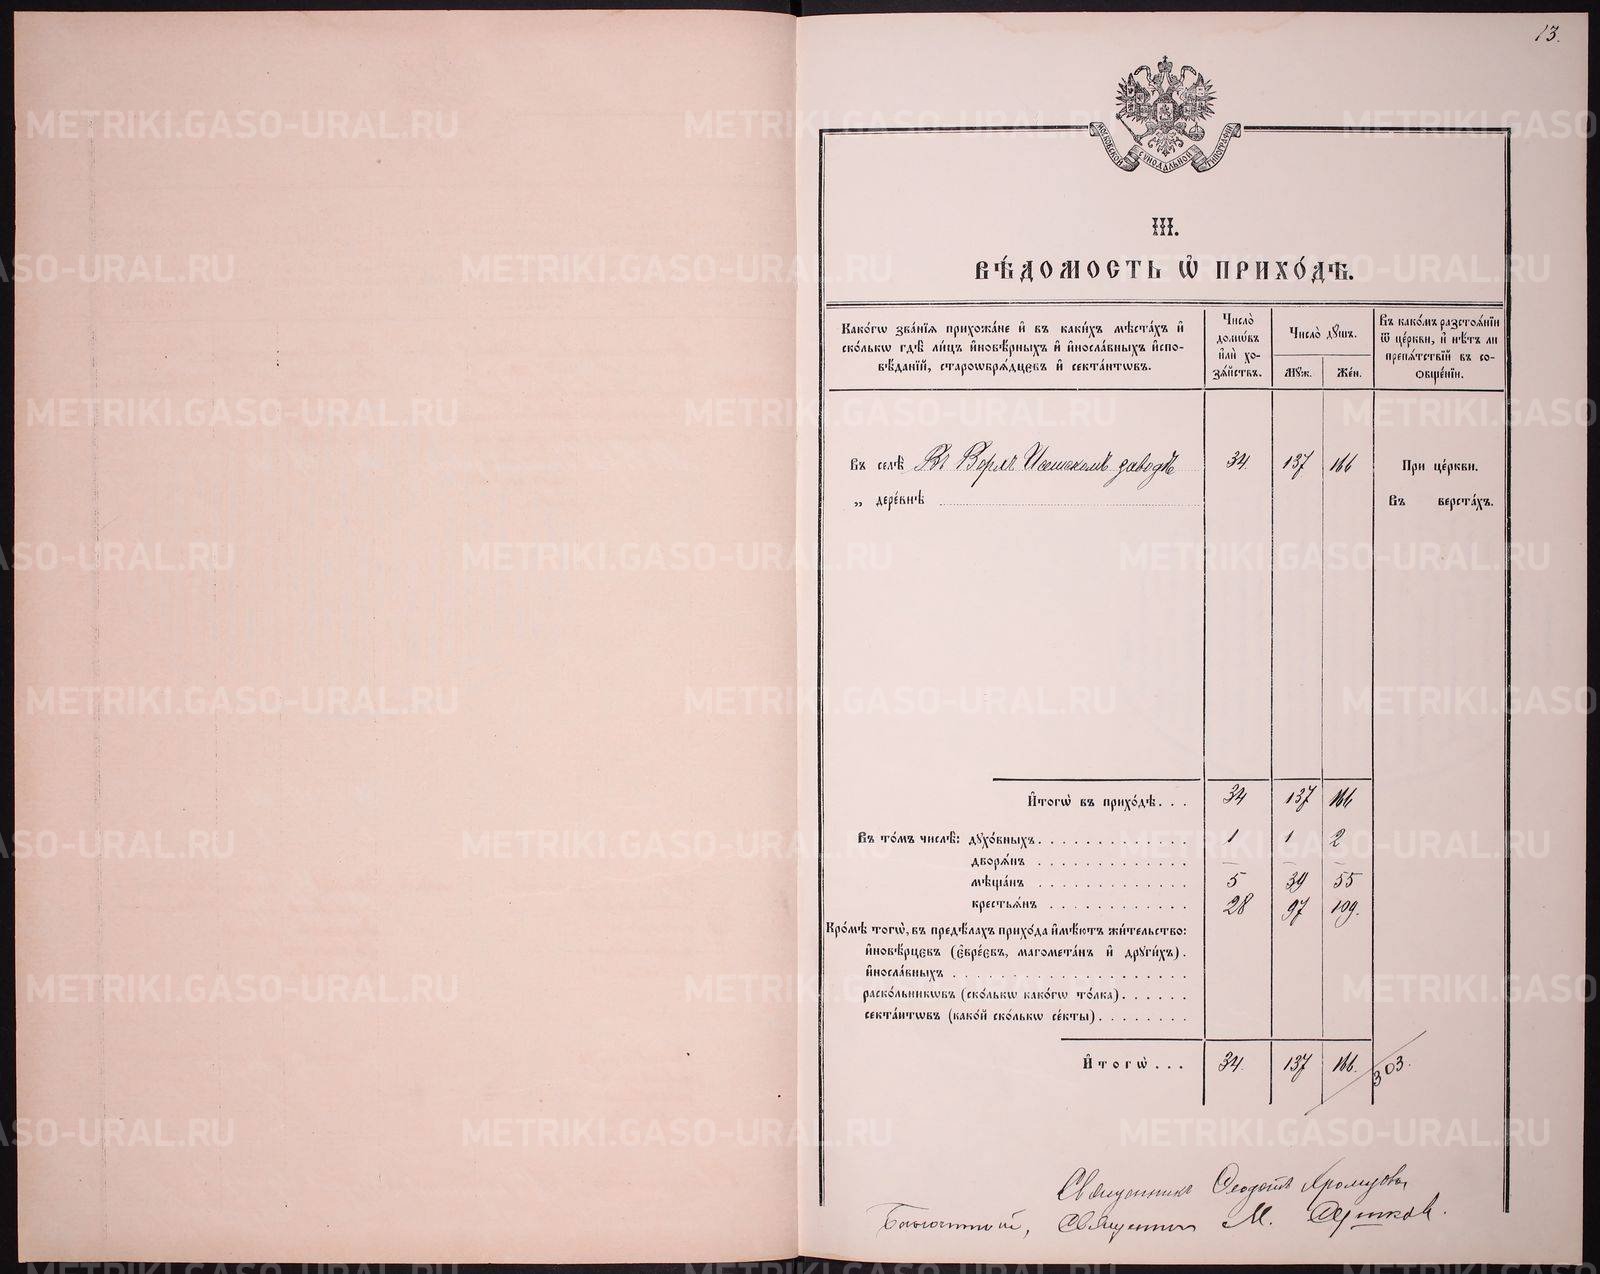 13.
МОСКОВСКОЙ СѴНОДАЛЬНОЙ ТИПОГРАФІИ
III.
ВѢ́ДОМОСТЬ Ѡ҆ ПРИХО́ДѢ.
Како́гѡ зва́нїѧ прихожа́не и҆ въ каки́хъ мѣста́хъ и҆
ско́лькѡ гдѣ̀ ли́цъ и҆новѣ́рныхъ и҆ и҆носла́вныхъ и҆спо-
вѣ́данїй, староѡбрѧ́дцевъ и҆ секта́нтѡвъ.
Число̀
домѡ́въ
и҆лѝ хо-
зѧ́йствъ.
Число̀ дꙋ́шъ.
Мꙋж.
Же́н.
Въ како́мъ разстоѧ́нїи
ѿ це́ркви, и҆ нѣ́тъ ли
препѧ́тствїй въ со-
ѻбще́нїи.
Въ селѣ̀ Въ Верхъ Исетскомъ заводѣ 34. 137 166 При це́ркви.
„ дере́внѣ Въ верста́хъ.
И҆тогѡ̀ въ прихо́дѣ... 34 137 166
Въ то́мъ числѣ̀: дꙋхо́вныхъ 1 1 2
дворѧ́нъ – – –
мѣща́нъ 5 39 55
крестьѧ́нъ 28 97 109.
Кро́мѣ тогѡ̀, въ предѣ́лахъ прихо́да и҆мѣ́ютъ жи́тельство:
и҆новѣ́рцевъ (є҆вре́евъ, магомета́нъ и҆ дрꙋги́хъ).
и҆носла́вныхъ
раско́льникѡвъ (ско́лькѡ како́гѡ то́лка)
секта́нтѡвъ (како́й ско́лькѡ се́кты)
И҆тогѡ̀... 34. 137 166. 303.
Священникъ Ѳеодотъ
Благочинный, священникъ М.
METRIKI.GASO-URAL.RU